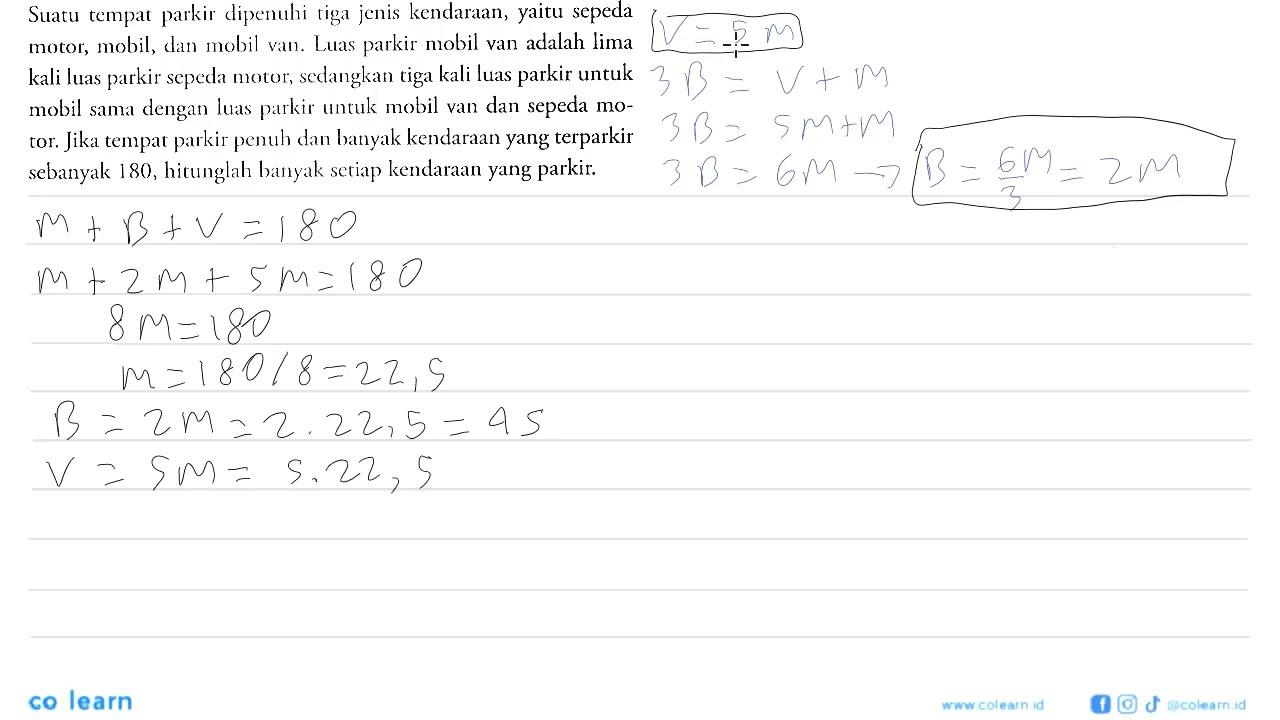 Suatu tempat parkir dipenuhi tiga jenis kendaraan, yaitu sepeda
motor, mobil, dan mobil van. Luas parkir mobil van adalah lima
kali luas parkir sepeda motor, sedangkan tiga kali luas parkir untuk
mobil sama dengan luas parkir untuk mobil van dan sepeda mo-
tor. Jika tempat parkir penuh dan banyak kendaraan yang terparkir
sebanyak 180, hitunglah banyak setiap kendaraan yang parkir.
V = 5 M
3 B = V + M
3 B = 5M+M
3 B = 6M → B = 6M/3 = 2M
M + B + V = 180
M + 2M + 5M = 180
8M = 180
M = 180/8 = 22,5
B = 2M = 2.22,5 = 45
V = 5M = 5.22,5
co learn
www.colearn.id
@colearn.id